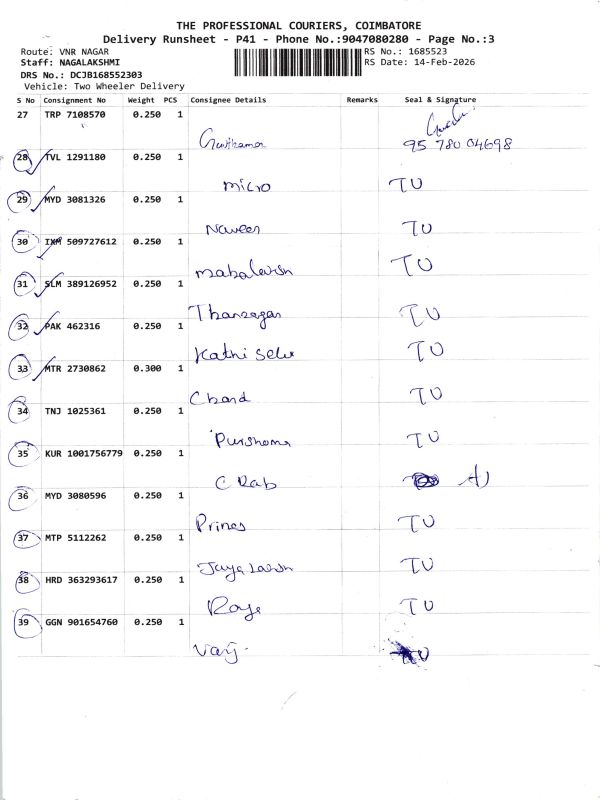 THE PROFESSIONAL COURIERS, COIMBATORE
Delivery Runsheet - P41 - Phone No.:9047080280 - Page No.:3
Route: VNR NAGAR RS No.: 1685523
Staff: NAGALAKSHMI RS Date: 14-Feb-2026
DRS No.: DCJB168552303
Vehicle: Two Wheeler Delivery
S No Consignment No Weight PCS Consignee Details Remarks Seal & Signature
27 TRP 7108570 0.250 1
95 780 04698
28 TVL 1291180 0.250 1
micro TU
29 MYD 3081326 0.250 1
Naveen TU
30 IXM 509727612 0.250 1
TU
31 SLM 389126952 0.250 1
TU
32 PAK 462316 0.250 1
Kathi Selu TU
33 MTR 2730862 0.300 1
Chand TU
34 TNJ 1025361 0.250 1
TU
35 KUR 1001756779 0.250 1
C Rab
36 MYD 3080596 0.250 1
Princs TU
37 MTP 5112262 0.250 1
TU
38 HRD 363293617 0.250 1
TU
39 GGN 901654760 0.250 1
TU